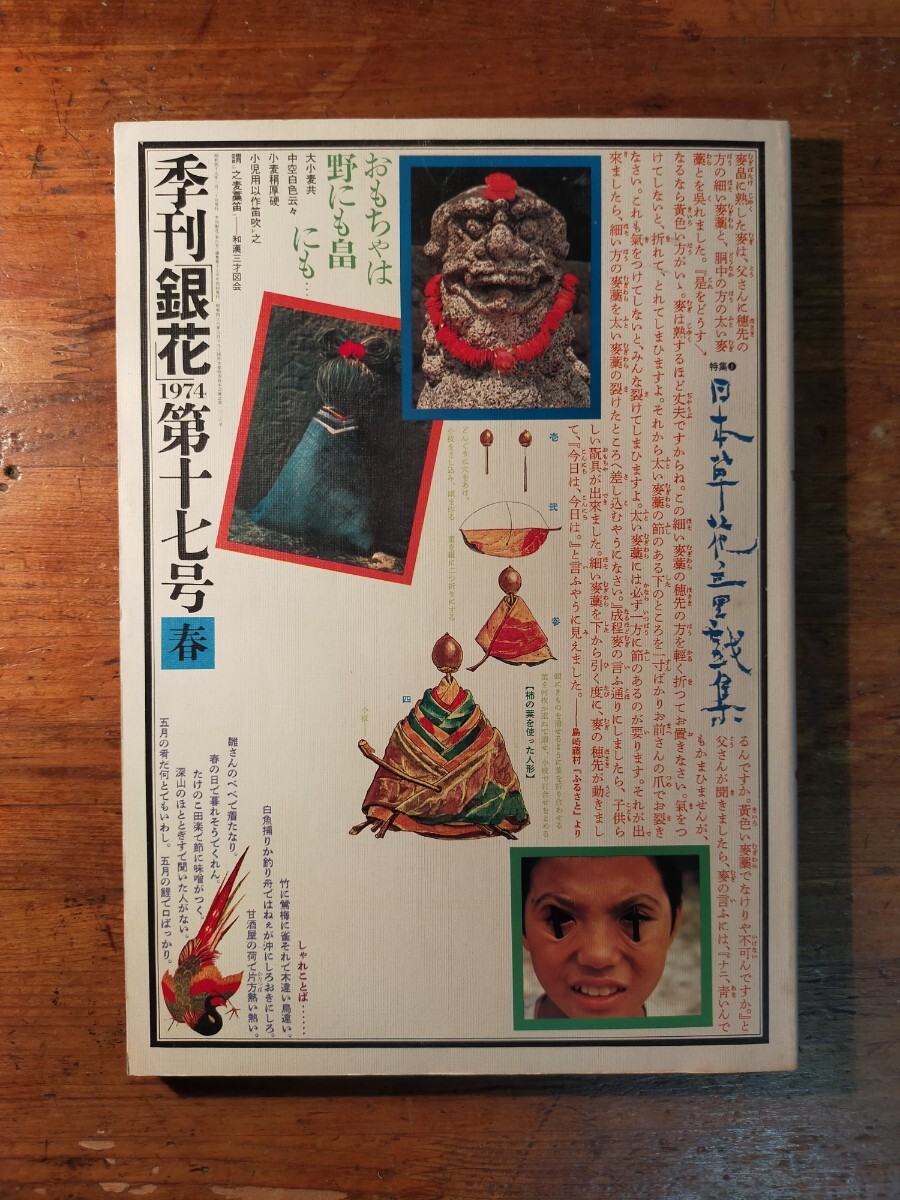 特集❶
日本草花
戯集
麥畠に熟した麥は、父さんに穗先の
方の細い麥藁と、胴中の方の太い麥
藁とを呉れました。『是をどうす
るんですか。黄色い麥藁でなけりや不可んですか。』と
父さんが聞きましたら、麥の言ふには、『ナニ、青いんで
もかまひませんが、
なるなら黄色い方がいゝ。麥は熟するほど丈夫ですからね。この細い麥藁の穗先の方を輕く折つてお置きなさい。氣をつ
けてしないと、折れて、とれてしまひますよ。それから太い麥藁の節のある下のところを一寸ばかりお前さんの爪でお裂き
なさい。これも氣をつけてしないと、みんな裂けてしまひますよ。太い麥藁には必ず一方に節のあるのが要ります。それが出
來ましたら、細い方の麥藁を太い麥藁の裂けたところへ差し込むやうになさい。』成程麥の言ふ通りにしましたら、子供ら
しい翫具が出來ました。細い麥藁を下から引く度に、麥の穗先が動きまし
て、『今日は、今日は。』と言ふやうに見えました。――島崎藤村『ふるさと』より
おもちゃは
野にも畠
にも…
大小麦共
中空白色云々
小麦稍厚硬
小児用以作笛吹レ之
謂二之麦藁笛一――和漢三才図会
壱
弐
参
四
どんぐりに穴をあけ、
小枝をさし込み、頭を作る
葉を縦に二つ折りにする
小枝
【柿の葉を使った人形】
季刊「銀花」1974第十七号
春
しゃれことば……
竹に鶯梅に雀それで木違い鳥違い。
白魚捕りか釣り舟ではねぇが沖にしろおきにしろ。
甘酒屋の荷で片方熱い熱い。
雛さんのべべで着たなり。
春の日で暮れそうでくれん。
たけのこ田楽で節に味噌がつく。
深山のほととぎすで聞いた人がない。
五月の肴だ何とでもいわし。五月の鯉で口ばっかり。